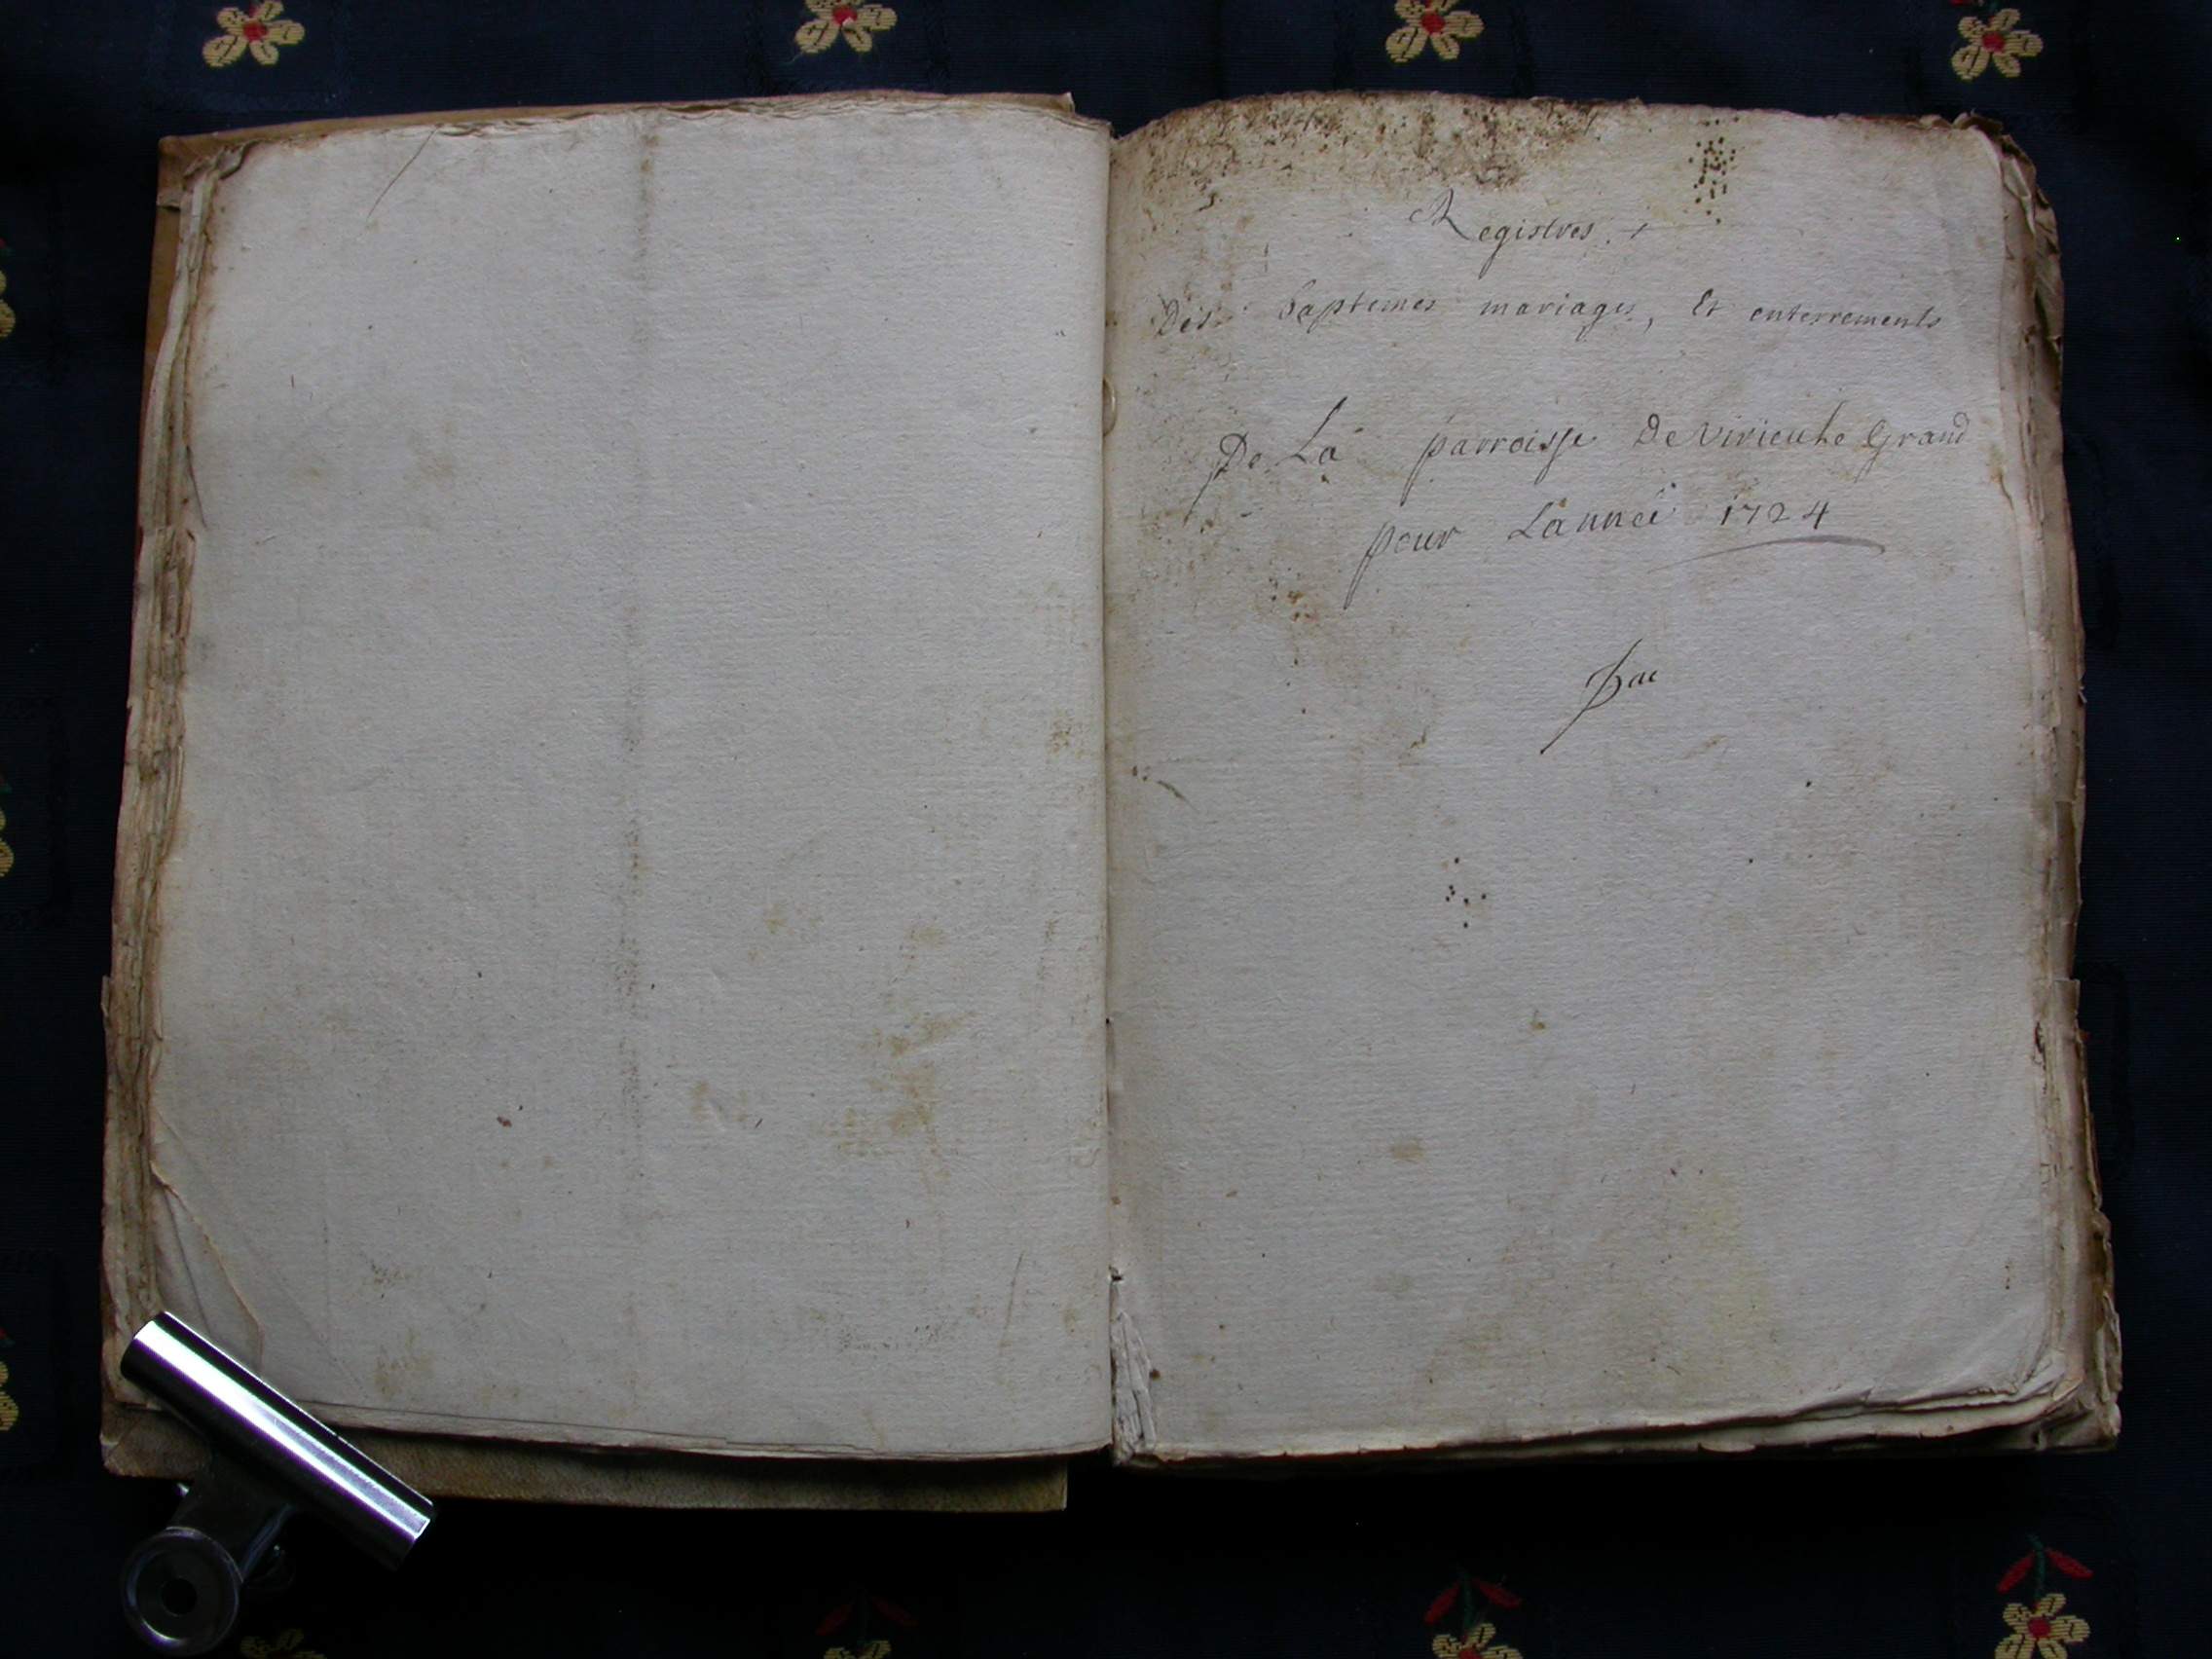 Registres.
Des baptemes mariages, Et enterrements
De La parroisse De Virieu le Grand
pour Lanneé 1724